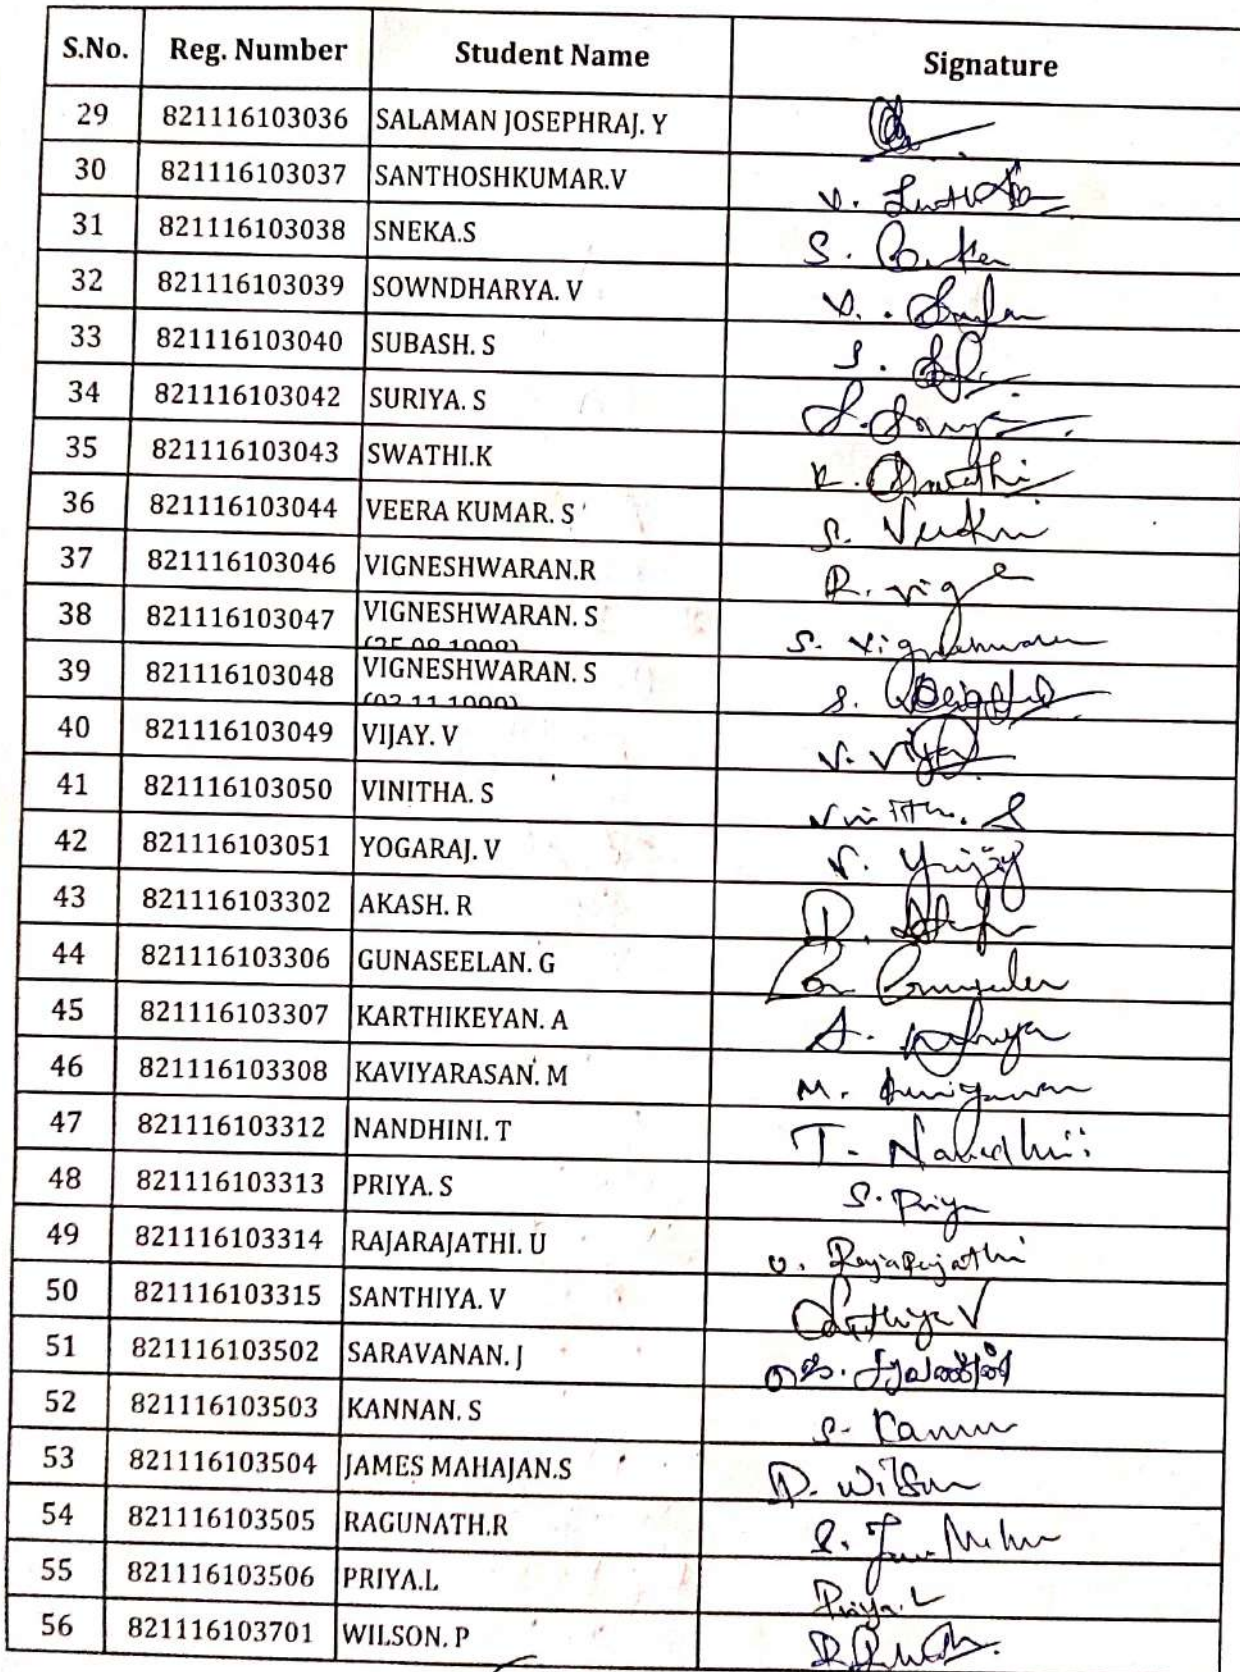 S.No. Reg. Number Student Name Signature
29 821116103036 SALAMAN JOSEPHRAJ. Y
30 821116103037 SANTHOSHKUMAR.V V.
31 821116103038 SNEKA.S S.
32 821116103039 SOWNDHARYA. V V.
33 821116103040 SUBASH. S S.
34 821116103042 SURIYA. S S. Suriya
35 821116103043 SWATHI.K K. Swathi
36 821116103044 VEERA KUMAR. S S.
37 821116103046 VIGNESHWARAN.R R. Vig
38 821116103047 VIGNESHWARAN. S S. Vigneshwaran
(25.08.1998)
39 821116103048 VIGNESHWARAN. S S.
(03.11.1999)
40 821116103049 VIJAY. V V. Vijay
41 821116103050 VINITHA. S Vinitha. S
42 821116103051 YOGARAJ. V V.
43 821116103302 AKASH. R R.
44 821116103306 GUNASEELAN. G
45 821116103307 KARTHIKEYAN. A A.
46 821116103308 KAVIYARASAN. M M.
47 821116103312 NANDHINI. T T. Nandhini
48 821116103313 PRIYA. S S. Priya
49 821116103314 RAJARAJATHI. U U. Rajarajathi
50 821116103315 SANTHIYA. V Santhiya V
51 821116103502 SARAVANAN. J
52 821116103503 KANNAN. S S. Kannan
53 821116103504 JAMES MAHAJAN.S P. Wilson
54 821116103505 RAGUNATH.R S.
55 821116103506 PRIYA.L Priya. L
56 821116103701 WILSON. P R.